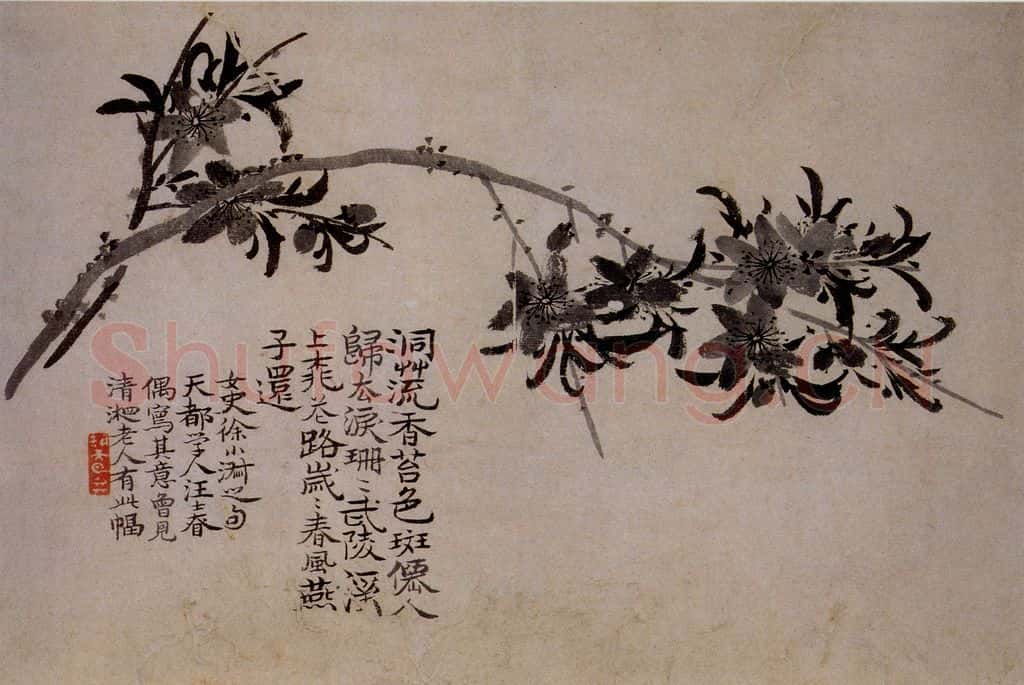 洞艸流香苔色斑僊人
歸去淚珊〻武陵溪
上桃花路歲〻春風燕
子還
女史徐小淑之句
天都学人汪士昚
偶寫其意曾見
清湘老人有此幅
Shufawang.cn